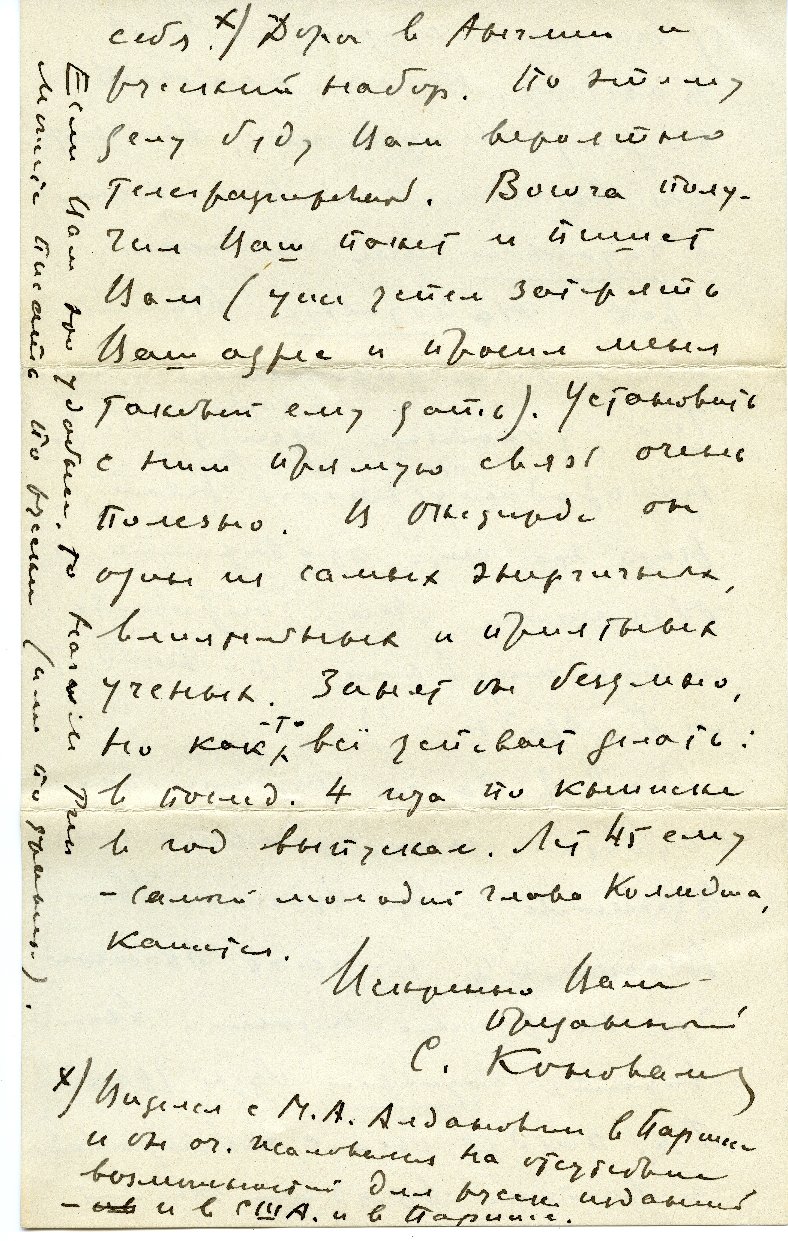 себя.ˣ) Дорог в Англии и
русский набор. По этому
делу буду Вам вероятно
телеграфировать. Bowra полу-
чил Ваш пакет и пишет
Вам (уже успел затерять
Ваш адрес и просил меня
таковый ему дать). Установить
с ним прямую связь очень
полезно. В Оксфорде он
один из самых энергичных,
влиятельных и приятных
ученых. Занят он бездумно,
но как-то всё успевает делать:
в послед. 4 года по книжке
в год выпускал. Лет 45 ему
– самый молодой глава Колледжа,
кажется.
Искренно Вам
преданный
С. Коновалов
x) Виделся с М. А. Алдановым в Париже
и он оч. жаловался на отсутствие
возможностей для русск. изданий
– и в США. и в Париже.
Если Вам это удобнее, то
можете писать по русски (или по